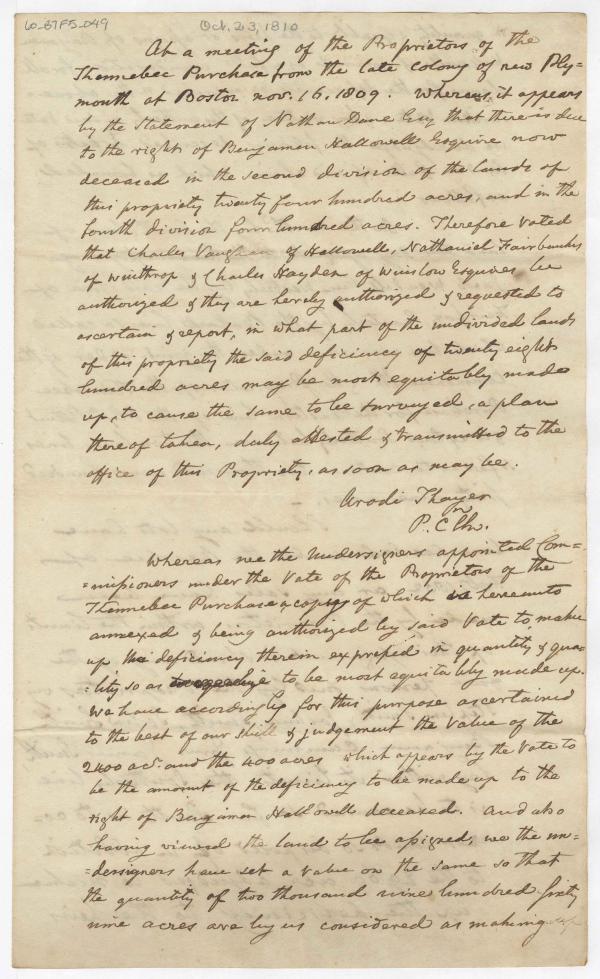 60_B7F5_049
Oct. 23, 1810
At a meeting of the Proprietors of the
Kennebec Purchase from the late colony of new Ply=
mouth at Boston nov. 16. 1809. Whereas it appears
by the Statement of Nathan Dane Esq that there is due
to the right of Benjamin Hallowell Esquire now
deceased in the second division of the lands of
this propriety twenty four hundred acres, and in the
fourth division four hundred acres. Therefore Voted
that Charles Vaughan of Hallowell, Nathaniel Fairbanks
of Winthrop & Charles Hayden of Winslow Esquires be
authorized & they are hereby authorized & requested to
ascertain & report, in what part of the undivided lands
of this propriety the said deficiency of twenty eight
hundred acres may be most equitably made
up, to cause the same to be surveyed, a plan
thereof taken, duly attested & transmitted to the
office of this Propriety, as soon as may be.
Arodi Thayer
Pr.
Whereas we the Undersigners appointed Com=
=missioners under the Vote of the Proprietors of the
Kennebec Purchase a copy of which is hereunto
annexed & being authorized by said Vote to make
up the deficiency therein expressed in quantity & qua=
=lity so as to equalize to be most equitably made up.
We have accordingly for this purpose ascertained
to the best of our skill & judgement the Value of the
2400 acs. and the 400 acres which appears by the Vote to
be the amount of the deficiency to be made up to the
right of Benjamin Hallowell deceased. And also
having viewed the land to be assigned, we the un=
=dersigners have set a Value on the same so that
the quantity of two thousand nine hundred sixty
nine acres are by us considered as making up